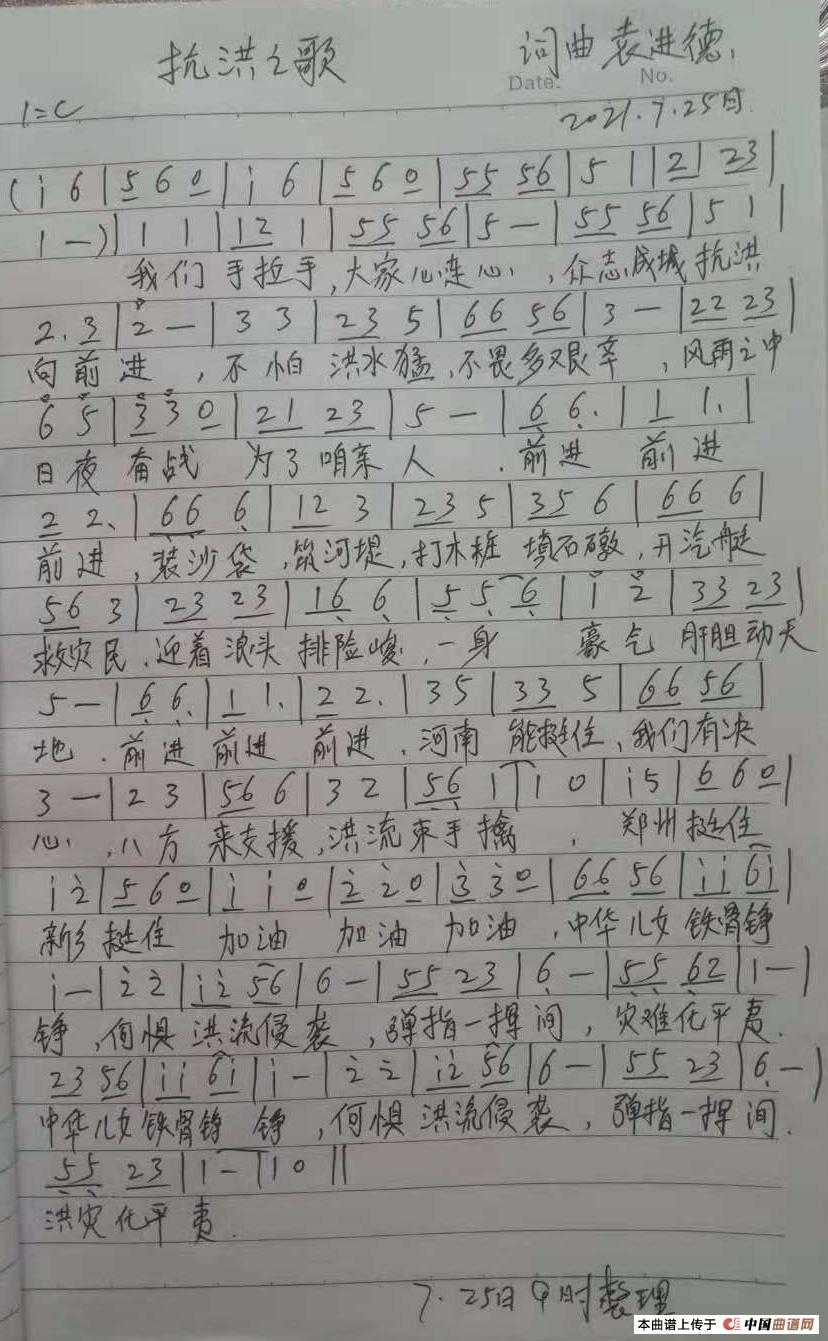 抗洪之歌 词曲 袁进德
Date. No.
1=C 2021.7.25日
(i 6 | 5 6 0 | i 6 | 5 6 0 | 55 56 | 5 1 | 2 | 23 |
1 —) | 1 1 | 12 1 | 55 56 | 5 — | 55 56 | 5 1 |
我们 手拉手,大家心连心,众志成城抗洪
2. 3 | 2 — | 3 3 | 23 5 | 66 56 | 3 — | 22 23 |
向前进,不怕 洪水猛,不畏多艰辛,风雨之中
6 5 | 3 3 0 | 21 23 | 5 — | 6 6. | 1 1. |
日夜奋战 为了咱亲人.前进 前进
2 2. | 66 6 | 12 3 | 23 5 | 35 6 | 66 6 |
前进,装沙袋,筑河堤,打木桩 填石礅,开汽艇
56 3 | 23 23 | 16 6 | 5 5 6 | i 2 | 33 23 |
救灾民.迎着浪头 排险峻,一身 豪气 肝胆动天
5 — | 6 6. | 1 1. | 2 2. | 35 | 33 5 | 66 56 |
地.前进 前进 前进.河南 能挺住,我们有决
3 — | 2 3 | 56 6 | 3 2 | 56 1 | 1 0 | i 5 | 6 6 0 |
心,八方 来支援,洪流束手擒.郑州挺住
i 2 | 5 6 0 | i i 0 | 2 2 0 | 3 3 0 | 66 56 | i i 6i |
新乡挺住 加油 加油 加油,中华儿女 铁骨铮
i — | 2 2 | i2 56 | 6 — | 55 23 | 6 — | 55 62 | 1 — |
铮,何惧 洪流侵袭,弹指一挥间,灾难化平夷.
23 56 | i i 6i | i — | 2 2 | i2 56 | 6 — | 55 23 | 6. — |
中华儿女铁骨铮 铮,何惧 洪流侵袭,弹指一挥间.
55 23 | 1 — | 1 0 ||
洪灾化平夷.
7.25日 9时整理
本曲谱上传于 中国曲谱网